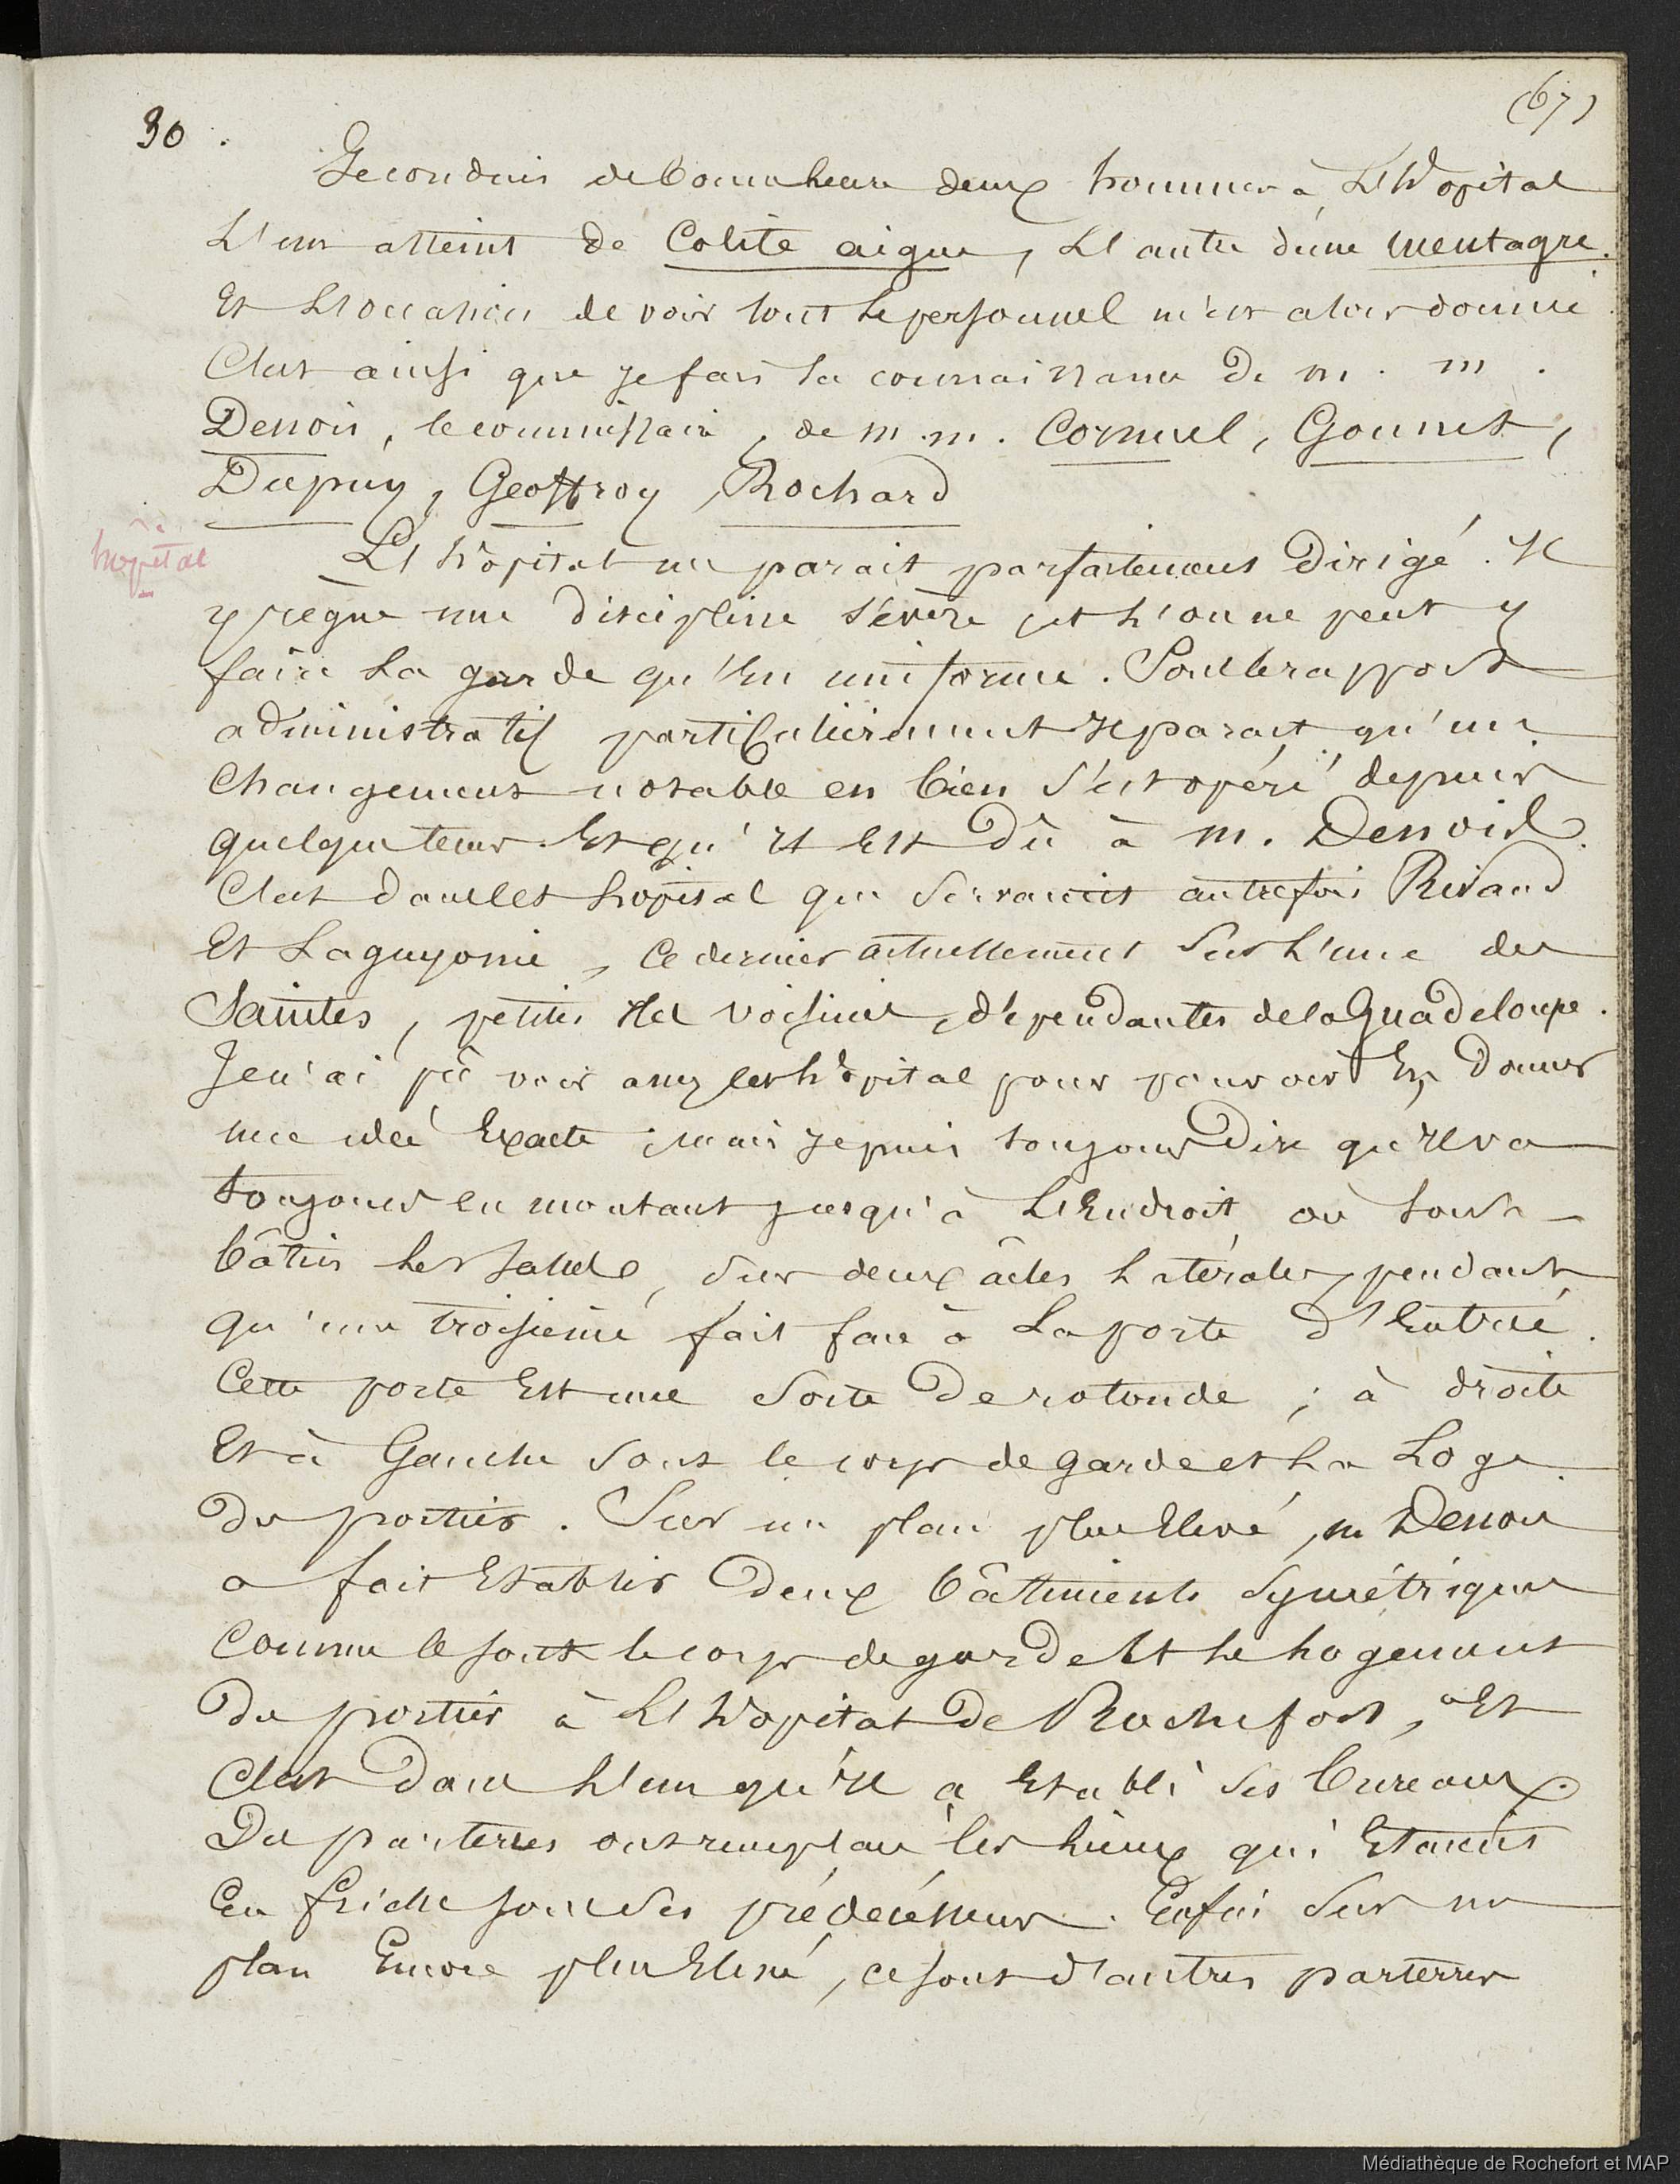 (67)
30 .
Je conduis de bonne heure deux hommes à L'hôpital
L'un atteint de Colite aigue, L'autre d'une mentagre.
Et L'occasion de voir tout le personnel m'est alors donnée.
C'est ainsi que je fais la connaissance de m. m.
Denois, le commissaire, de m. m. Cornuel, Gounet,
Dupuy, Geoffroy, Rochard
hôpital
L'hôpital me parait parfaitement dirigé. Il
y règne une discipline sévère et l'on ne peut y
faire la garde qu'en uniforme. Sous le rapport
administratif particulièrement il parait qu'un
changement notable en bien s'est opéré depuis
quelque tems Et qu'il est dû à m. Denois.
C'est dans cet hôpital que servaient autrefois Rivaud
Et Laguyonie, ce dernier actuellement sur l'une des
Saintes, petites iles voisines, dépendantes de la Guadeloupe.
Je n'ai pû voir assez cet hôpital pour pouvoir En donner
une idée Exacte ; mais je puis toujours dire qu'il va
toujours en montant jusqu'à L'Endroit où sont
bâties les salles, sur deux ailes latérales, pendant
qu'une troisième fait face à La porte d'Entrée.
Cette porte Est une sorte de rotonde ; à droite
Et à Gauche sont le corps de garde et la Loge
du portier. Sur un plan plus Elevé, m Denois
a fait Etablir deux bâtiments symétriques
comme le sont le corps de garde Et le logement
du portier à L'hôpital de Rochefort, Et
c'est dans l'un qu'il a Etabli ses bureaux.
Des parterres ont remplacé les lieux qui Etaient
En friche sous ses prédécesseurs. Enfin sur un
plan Encore plus Elevé, ce sont d'autres parterres
Médiathèque de Rochefort et MAP